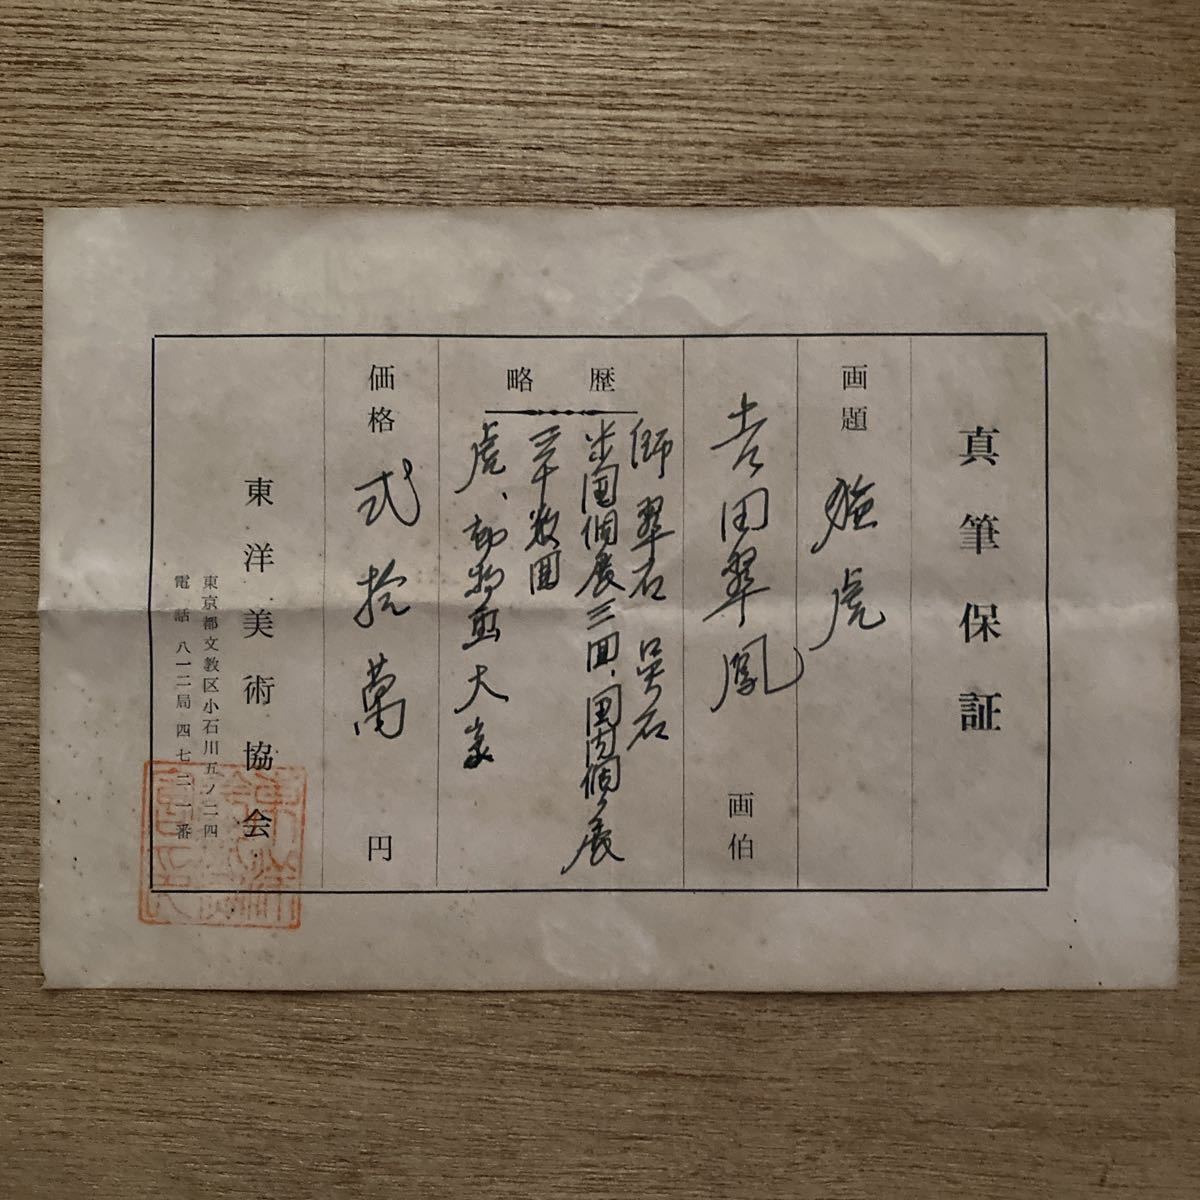 真筆保証
画題 猛虎
吉田翠鳳 画伯
略歴
師 翠石 呉石
米国個展三回、国内個展
三十数回
虎、動物画大家
価格 弐拾萬円
東洋美術協会
東京都文教区小石川五ノ二ノ四
電話 八一二局四七二一番